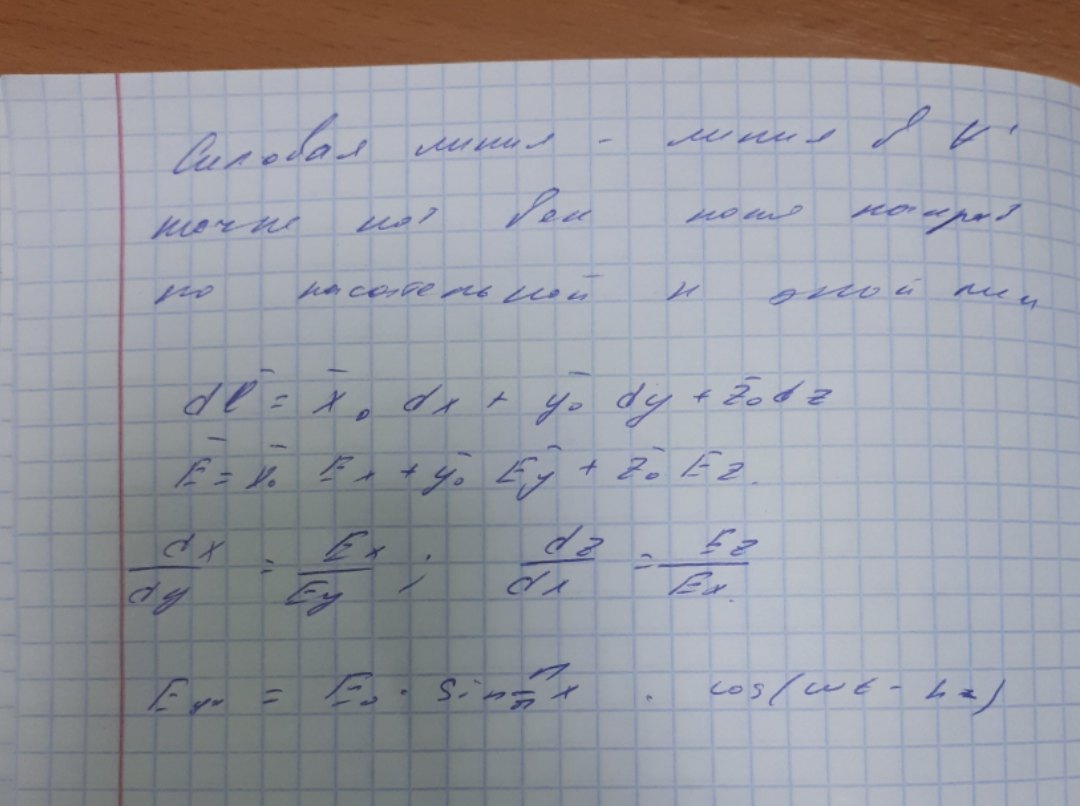 Силовая линия - линия в ∀
точке кот век поля направ
по касательной к этой лин
dl̄ = x̄₀ dx + ȳ₀ dy + z̄₀ dz
Ē = x̄₀ Ex + ȳ₀ Ey + z̄₀ Ez.
dx/dy = Ex/Ey ; dz/dx = Ez/Ex.
= E₀ · sin x · cos(ωt - hz)